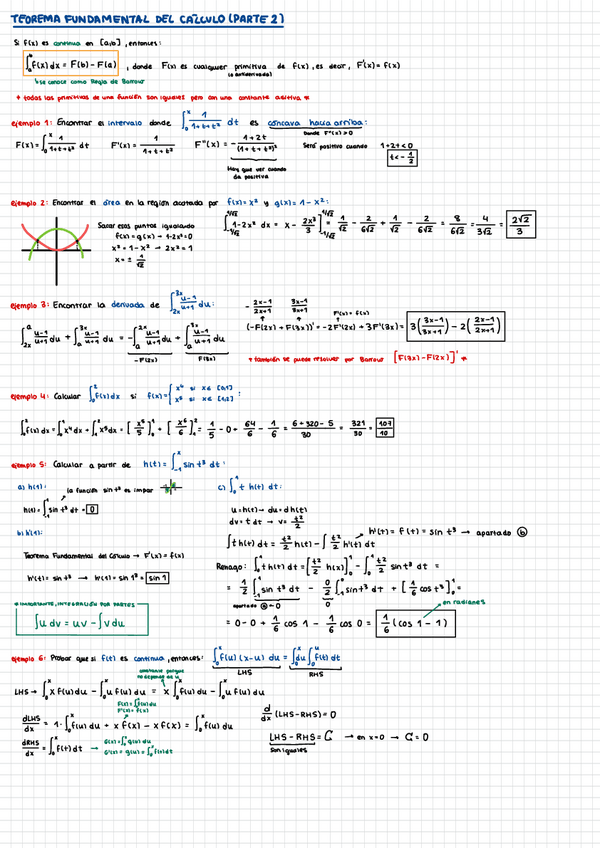 TEOREMA FUNDAMENTAL DEL CÁLCULO (PARTE 2)
Si f(x) es continua en [a,b], entonces:
∫_a^b f(x) dx = F(b) - F(a) , donde F(x) es cualquier primitiva de f(x), es decir, F'(x) = f(x)
(o antiderivada)
↳ se conoce como Regla de Barrow
* todas las primitivas de una función son iguales pero con una constante aditiva *
ejemplo 1: Encontrar el intervalo donde ∫_0^x 1/(1+t+t²) dt es cóncava hacia arriba:
donde F''(x) > 0
F(x) = ∫_0^x 1/(1+t+t²) dt F'(x) = 1/(1+t+t²) F''(x) = - (1+2t)/(1+t+t²)² Será positivo cuando 1+2t < 0
t < -1/2
Hay que ver cuando da positiva
ejemplo 2: Encontrar el área en la región acotada por f(x) = x² y g(x) = 1 - x²:
Sacar esos puntos igualando
f(x) = g(x) → 1-2x² = 0
x² = 1 - x² → 2x² = 1
x = ± 1/√2
∫_{-1/√2}^{1/√2} 1-2x² dx = x - 2x³/3 ]_{-1/√2}^{1/√2} = 1/√2 - 2/6√2 + 1/√2 - 2/6√2 = 8/6√2 = 4/3√2 = 2√2/3
ejemplo 3: Encontrar la derivada de ∫_{2x}^{3x} (u-1)/(u+1) du:
∫_{2x}^a (u-1)/(u+1) du + ∫_a^{3x} (u-1)/(u+1) du = -∫_a^{2x} (u-1)/(u+1) du + ∫_a^{3x} (u-1)/(u+1) du
-F(2x) F(3x)
- (2x-1)/(2x+1) (3x-1)/(3x+1)
F'(x) = f(x)
(-F(2x) + F(3x))' = -2F'(2x) + 3F'(3x) = 3((3x-1)/(3x+1)) - 2((2x-1)/(2x+1))
* también se puede resolver por Barrow [F(3x) - F(2x)]' *
ejemplo 4: Calcular ∫_0^2 f(x) dx si f(x) = { x⁴ si x∈[0,1] x⁵ si x∈[1,2] :
∫_0^2 f(x) dx = ∫_0^1 x⁴ dx + ∫_1^2 x⁵ dx = [x⁵/5]_0^1 + [x⁶/6]_1^2 = 1/5 - 0 + 64/6 - 1/6 = (6+320-5)/30 = 321/30 = 107/10
ejemplo 5: Calcular a partir de h(t) = ∫_{-1}^x sin t³ dt:
a) h(1): la función sin t³ es impar
h(1) = ∫_{-1}^1 sin t³ dt = 0
b) h'(1):
Teorema Fundamental del Cálculo → F'(x) = f(x)
h'(t) = sin t³ → h'(1) = sin 1³ = sin 1
* IMPORTANTE, INTEGRACIÓN POR PARTES
∫u dv = uv - ∫v du
c) ∫_0^1 t h(t) dt:
u = h(t) → du = dh(t)
dv = t dt → v = t²/2
h'(t) = f(t) = sin t³ → apartado b
∫t h(t) dt = t²/2 h(t) - ∫ t²/2 h'(t) dt
Renago: ∫_0^1 t h(t) dt = [t²/2 h(x)]_0^1 - ∫_0^1 t²/2 sin t³ dt =
= 1/2 ∫_{-1}^1 sin t³ dt - 0/2 ∫_{-1}^0 sin t³ dt + [1/6 cos t³]_0^1 =
apartado a = 0 0
en radianes
= 0 - 0 + 1/6 cos 1 - 1/6 cos 0 = 1/6 (cos 1 - 1)
ejemplo 6: Probar que si f(t) es continua, entonces: ∫_0^x f(u) (x-u) du = ∫_0^x du ∫_0^u f(t) dt
LHS RHS
constante porque no depende de u
LHS → ∫_0^x x f(u) du - ∫_0^x u f(u) du = x ∫_0^x f(u) du - ∫_0^x u f(u) du
F(x) = ∫_0^x f(u) du
F'(x) = f(x)
dLHS/dx = 1·∫_0^x f(u) du + x f(x) - x f(x) = ∫_0^x f(u) du
dRHS/dx = ∫_0^x f(t) dt → G(x) = ∫_0^x g(u) du
G'(x) = g(u) = ∫_0^x f(t) dt
d/dx (LHS - RHS) = 0
LHS - RHS = C → en x=0 → C = 0
son iguales